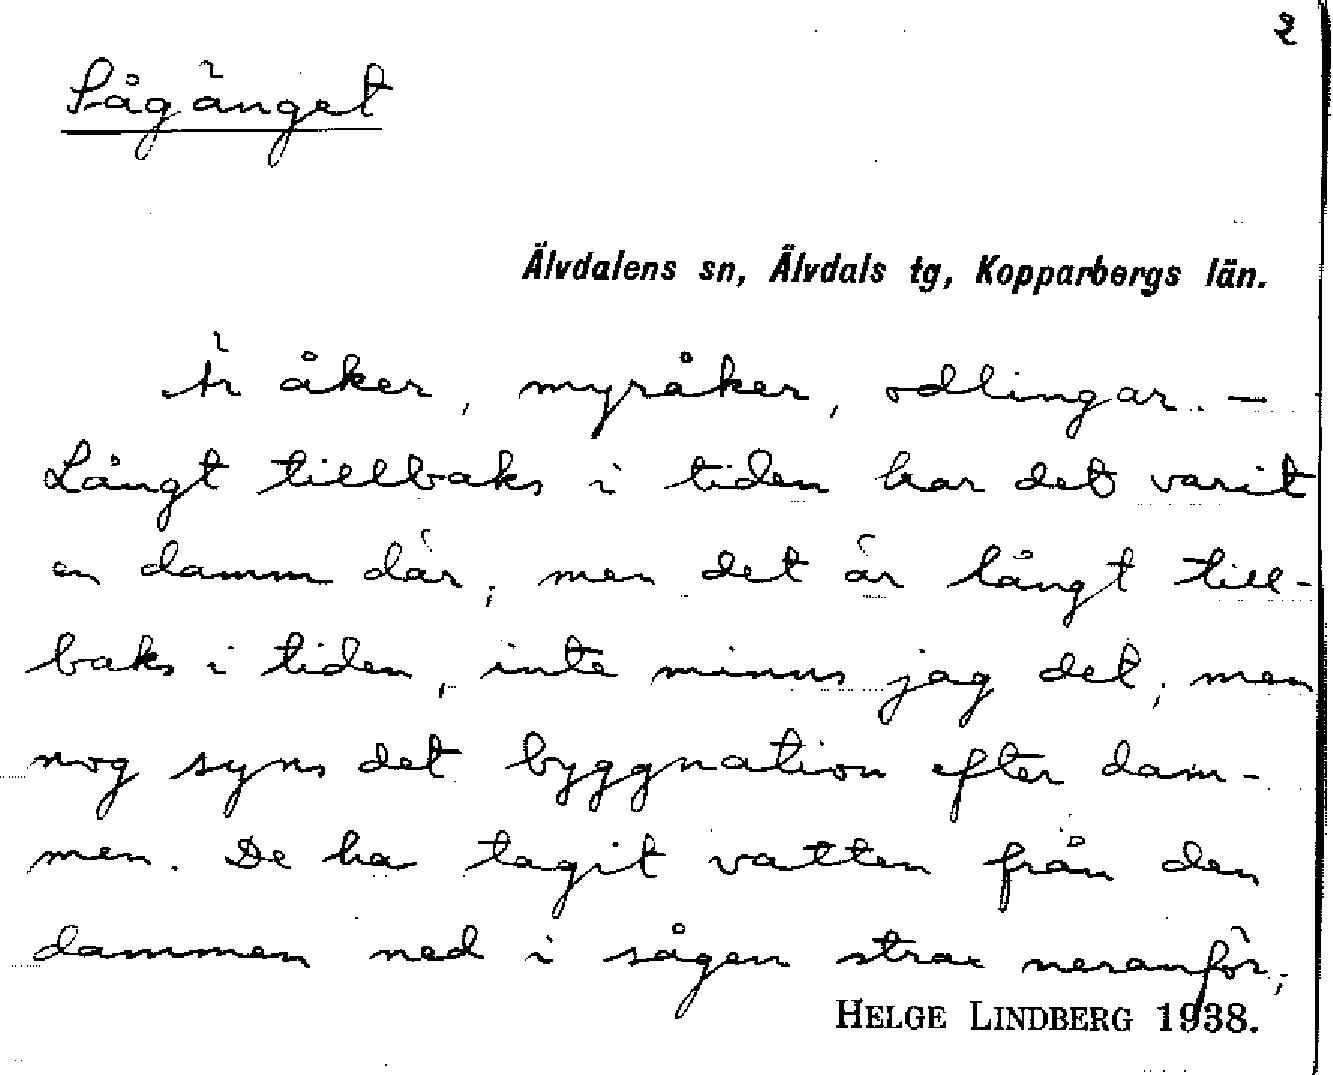 2
Sågänget
Älvdalens sn, Älvdals tg, Kopparbergs län.
Är åker, myråker, odlingar. —
Långt tillbaks i tiden har det varit
en damm där, men det är långt till-
baks i tiden, inte minns jag det, men
nog syns det byggnation efter dam-
men. De ha tagit vatten från den
dammen ned i sågen strax neranför,
HELGE LINDBERG 1938.